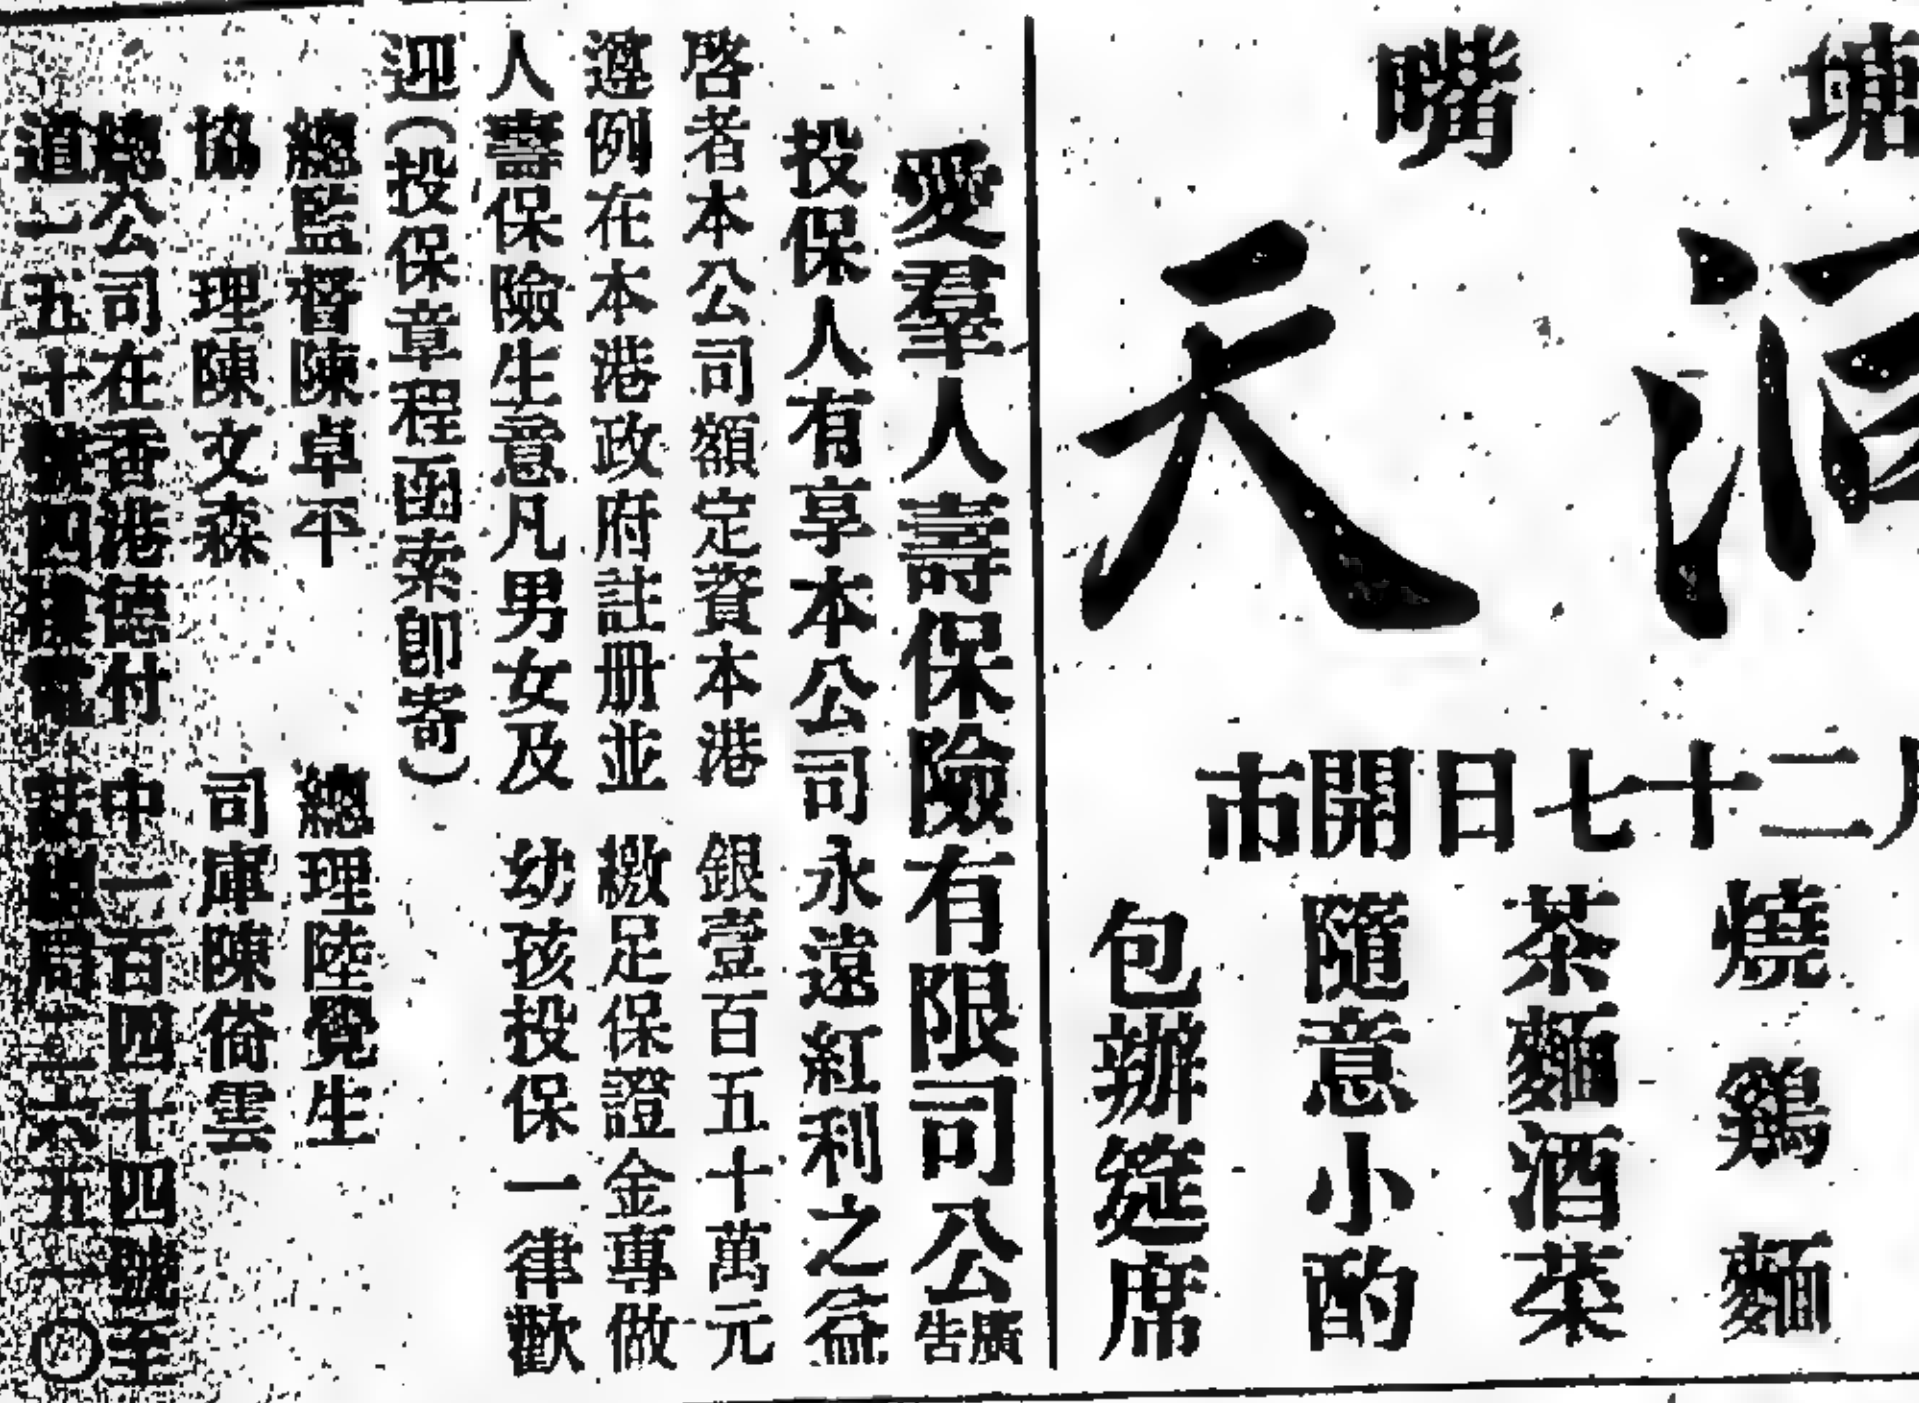 塘嘴
酒天
二十七日開市
燒鷄麵
茶麵酒菜
隨意小酌
包辦筵席
愛羣人壽保險有限司公廣告
投保人有享本公司永遠紅利之益
啓者本公司額定資本港銀壹百五十萬元
遵例在本港政府註册並繳足保證金專做
人壽保險生意凡男女及幼孩投保一律歡
迎(投保章程函索即寄)
總監督陳卓平 總理陸覺生
協理陳文森 司庫陳倚雲
總公司在香港德付中一百四十四號至
道一五十號四樓電話掛周二六五一